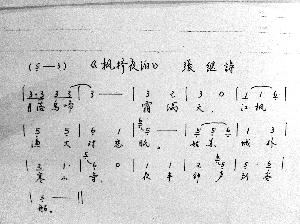 (5 — 3) 《枫桥夜泊》 張继詩
3 3 3 3 | 3 — — | 3 2 | 3 0 | 1 1 6
月落烏啼 霜滿 天 江枫
5 5 6 1 5 — — 5 5 6 1 6
漁火对愁 眠 姑苏 城外
3 1 6 0 1 1 2
寒山寺 夜半 钟 到客
5 — ||
船